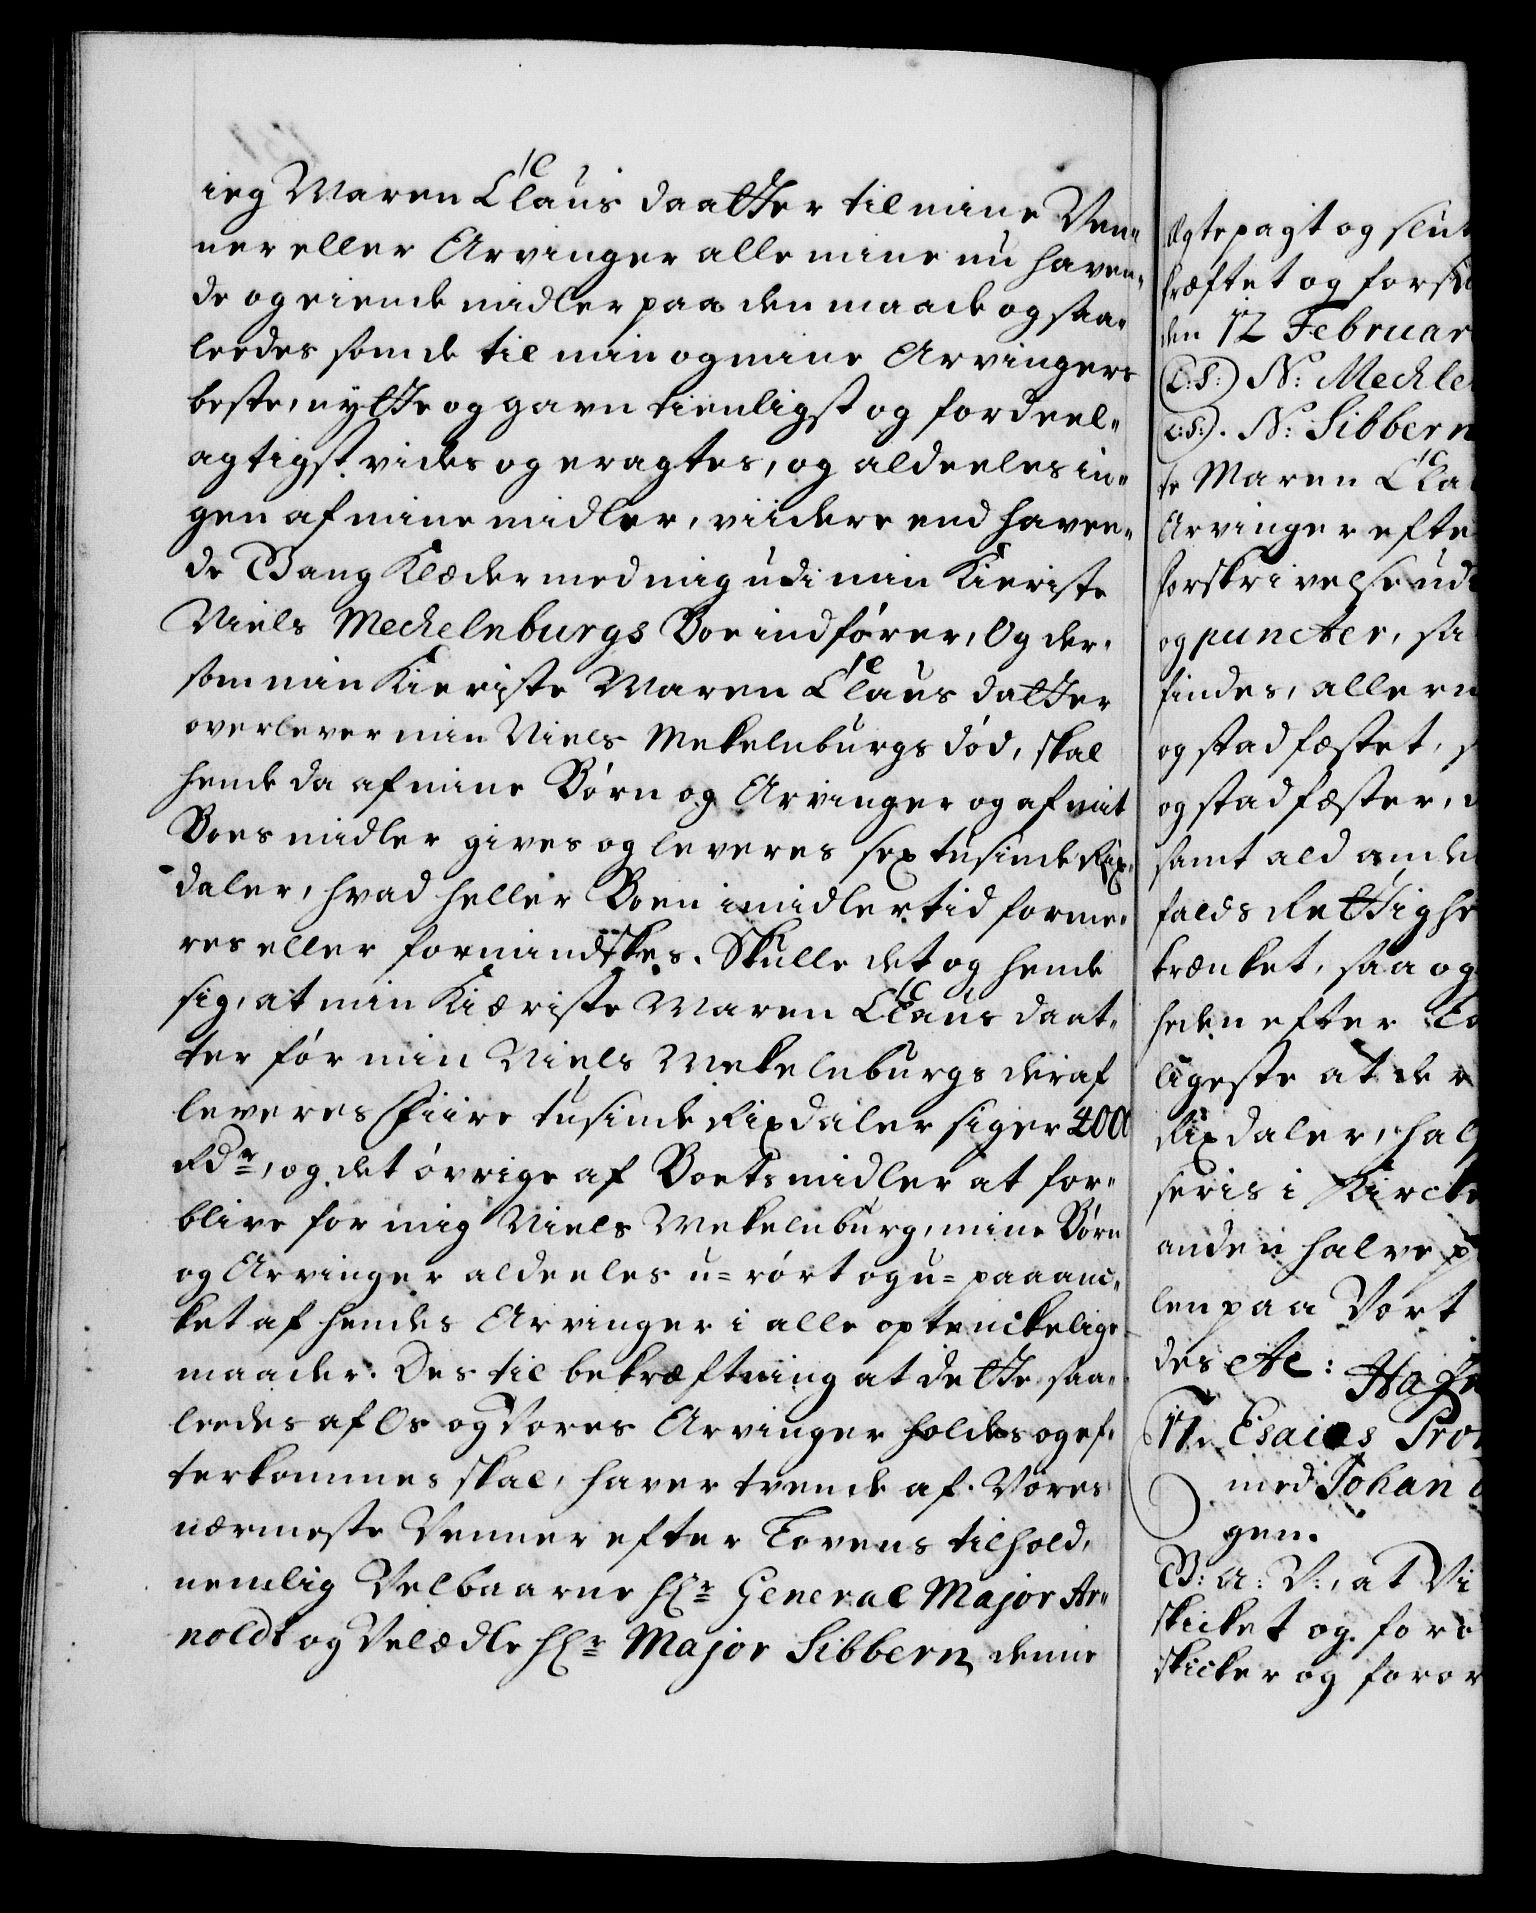 ieg Maren Claus daatter til mine Ven-
ner eller Arvinger alle mine nu haven-
de og eiende midler paa den maade og saa-
leedes som de til min og mine Arvingers
beste, nytte og gavn tienligst og fordeel-
agtigst vides og eragtes, og aldeeles in-
gen af mine midler, viidere end haven-
de Gang Klæder med mig udi min Kieriste
Niels Mechelnburgs Boe indfører, Og der-
som min Kieriste Maren Claus datter
overlever min Niels Mekelnburgs død, skal
hende da af mine Børn og Arvinger og af mit
Boes midler gives og leveres sex tusinde Rix-
daler, hvad heller Boen imidlertid forme-
res eller formindskes. Skulle det og hende
sig, at min Kiæriste Maren Claus daat-
ter før min Niels Mekelnburgs deraf
leveres Fiire tusinde Rixdaler siger 4000
Rdr, og det øvrige af Boets midler at for-
blive for mig Niels Mekelnburg, mine Børn
og Arvinger aldeeles u-rørt og u-paaanc-
ket af hendes Arvinger i alle optenckelige
maader. Des til bekræftning at dette saa-
leedes af Os og Vores Arvinger holdes og ef-
terkommes skal, haver tvende af Vores
nærmeste Venner efter Lovens tilhold,
nemlig Velbaarne Hr General Major Ar-
noldt og Velædle Hr Major Sibbern denne
Egtepagt og slut
kræftet og forse
den 12 Februar
(L.S.) N: Mechle
(L.S.). N: Sibbern
te Maren Cla
Arvinger efte
forskrivelse ud
og puncter, sa
findes, allern
og stadfæstet, s
og stadfæster,
samt ald ande
falds Rettighe
krænket, saa og
heden efter Lo
ligeste at de
Rixdaler, hal
seris i Kircke
anden halve p
len paa Vort
des etc: Hafn
17. Esaias Pro
med Johan
gen.
G: A: V:, at Vi
skicket og foro
skicker og foror